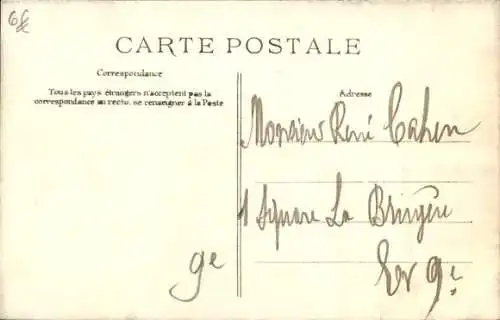 CARTE POSTALE
Correspondance
Tous les pays étrangers n'acceptent pas la
correspondance au recto. se renseigner à la Poste
Adresse
Monsieur René Cahen
1 Square La Bruyère
9e